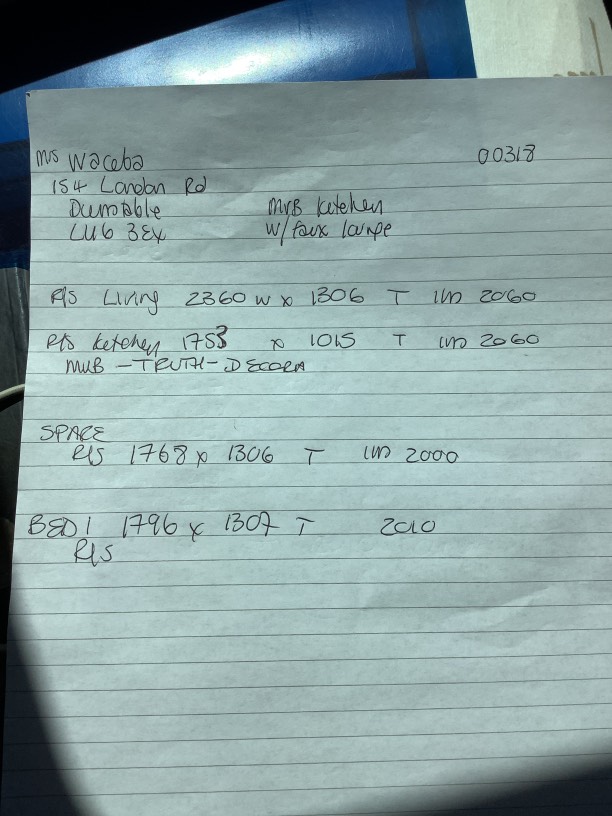 Mrs Waceba 00318
154 London Rd
Dunstable MWB kitchen
LU6 3EX W/faux lounge
R/S Living 2360 w x 1306 T 1m 2060
R/S kitchen 1753 x 1015 T 1m 2060
MWB - TRUTH - DECORA
SPARE
R/S 1768 x 1306 T 1m 2000
BED 1 1796 x 1307 T 2010
R/S